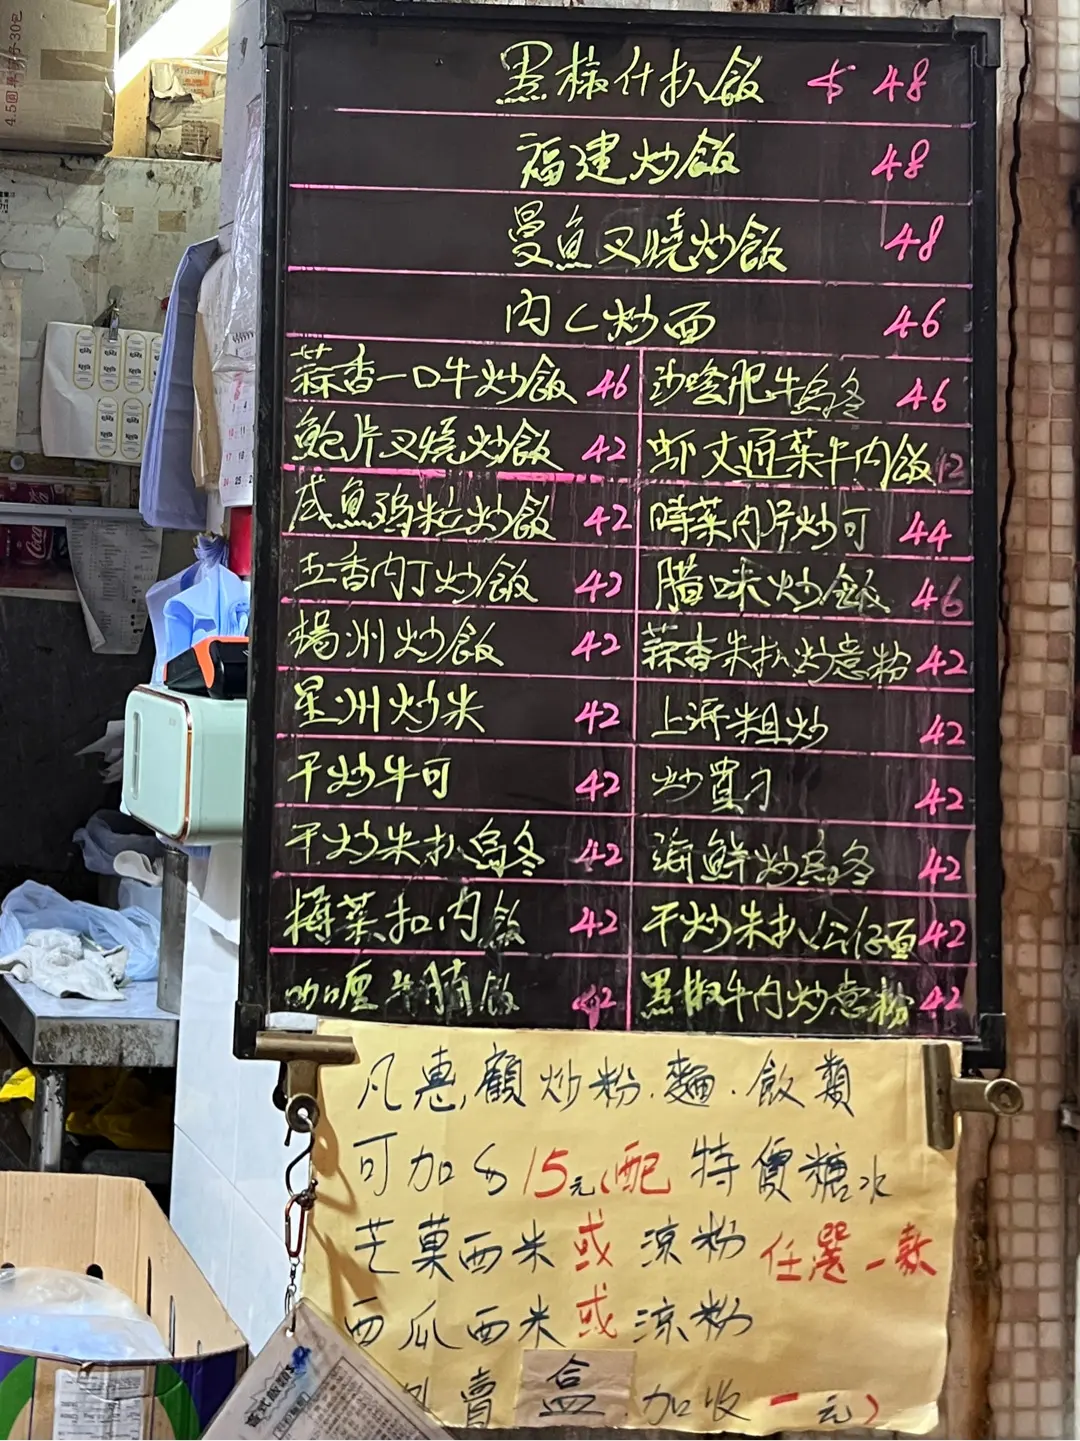 黑椒什扒飯 $48
福建炒飯 48
曼魚叉燒炒飯 48
肉乙炒面 46
蒜香一口牛炒飯 46
沙嗲肥牛烏冬 46
鮑片叉燒炒飯 42
虾丈通菜牛肉飯 42
咸魚鸡粒炒飯 42
時菜肉片炒可 44
五香肉丁炒飯 42
腊味炒飯 46
楊州炒飯 42
蒜香朱扒炒意粉 42
星州炒米 42
上海粗炒 42
干炒牛可 42
炒貴刁 42
干炒朱扒烏冬 42
海鮮炒烏冬 42
梅菜扣肉飯 42
干炒朱扒公仔面 42
咖喱牛腩飯 42
黑椒牛肉炒意粉 42
凡惠顧炒粉.麵.飯類
可加多15元配特價糖水
芒菓西米或涼粉 任選一款
西瓜西米或涼粉
外賣盒加收一元